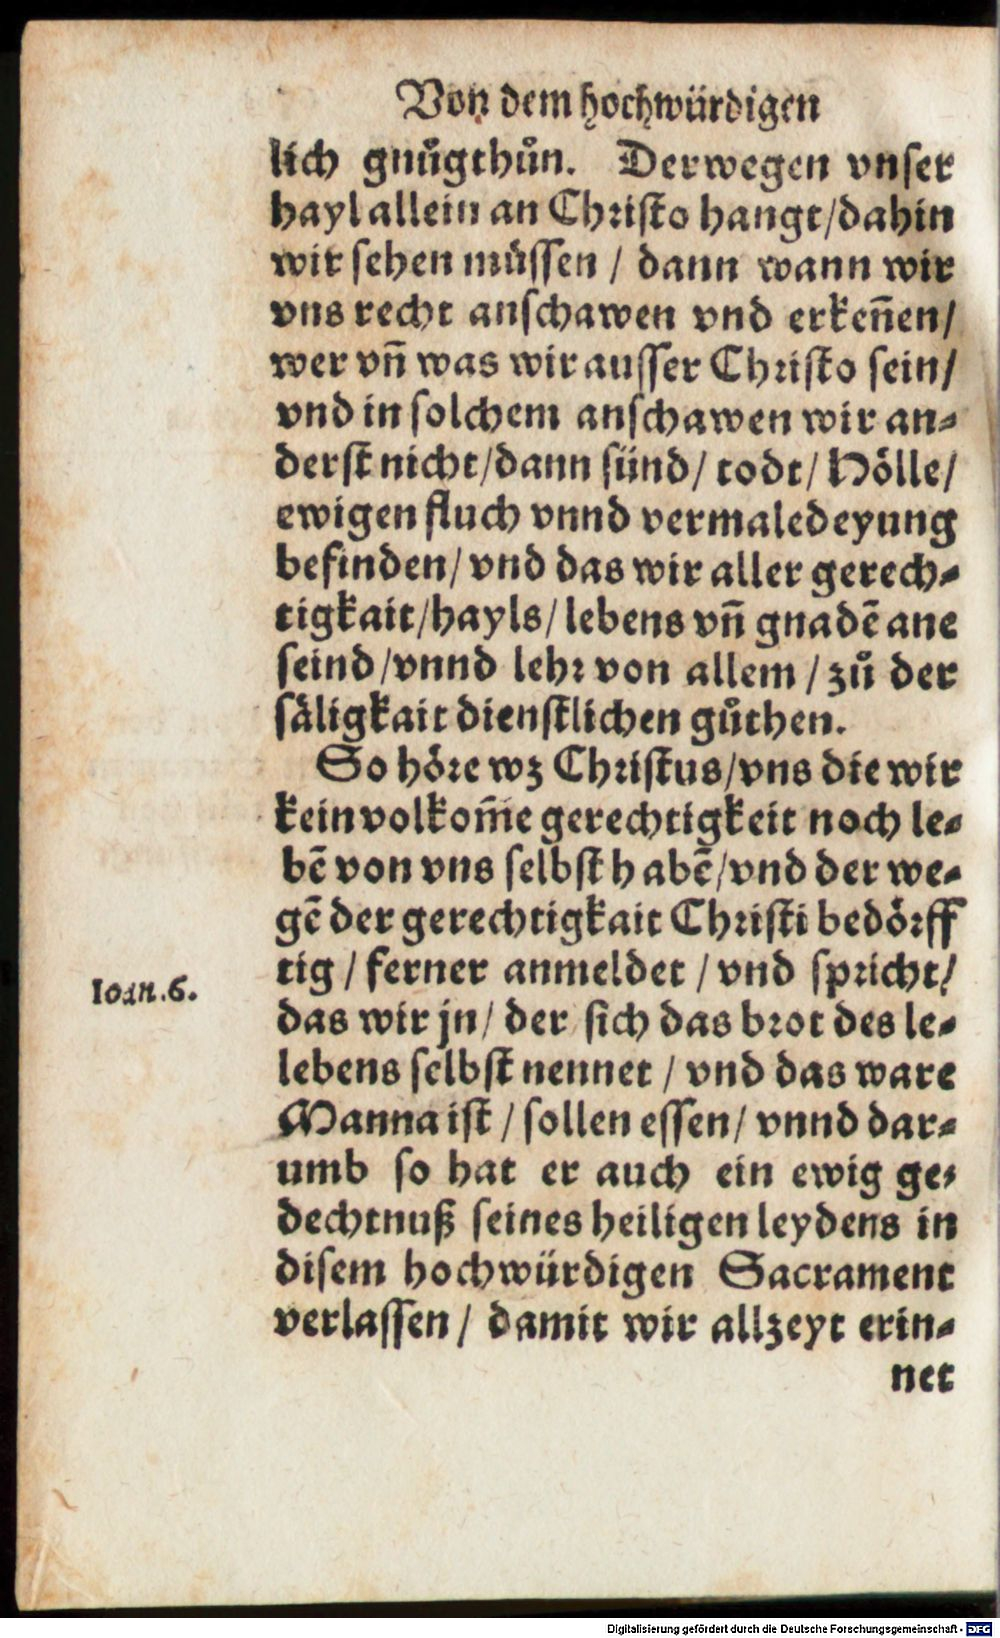 Von dem hochwürdigen
lich gnůgthůn. Derwegen vnser
hayl allein an Christo hangt/dahin
wir sehen müssen / dann wann wir
vns recht anschawen vnd erkeñen/
wer vñ was wir ausser Christo sein/
vnd in solchem anschawen wir an-
derst nicht/dann sünd/ todt/ Hölle/
ewigen fluch vnnd vermaledeyung
befinden/ vnd das wir aller gerech-
tigkait/hayls/ lebens vñ gnadē ane
seind/vnnd lehr von allem / zů der
säligkait dienstlichen gůthen.
So höre wz Christus/vns die wir
kein volkom̃e gerechtigkeit noch le-
bē von vns selbst habē/vnd der we-
gē der gerechtigkait Christi bedörff
tig / ferner anmeldet / vnd spricht/
Ioan.6.
das wir jn/ der sich das brot des le-
lebens selbst nennet / vnd das ware
Manna ist / sollen essen/ vnnd dar-
umb so hat er auch ein ewig ge-
dechtnuß seines heiligen leydens in
disem hochwürdigen Sacrament
verlassen / damit wir allzeyt erin-
net
Digitalisierung gefördert durch die Deutsche Forschungsgemeinschaft - DFG